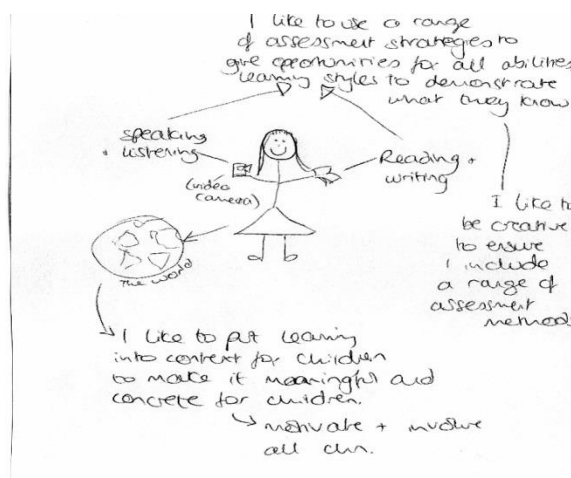 I like to use a range
of assessment strategies to
give opportunities for all abilities
learning styles to demonstrate
what they know
speaking
+ listening
(video
camera)
Reading +
writing
The world
I like to
be creative
to ensure
I include
a range of
assessment
methods
I like to put learning
into context for children
to make it meaningful and
concrete for children.
motivate + involve
all chn.